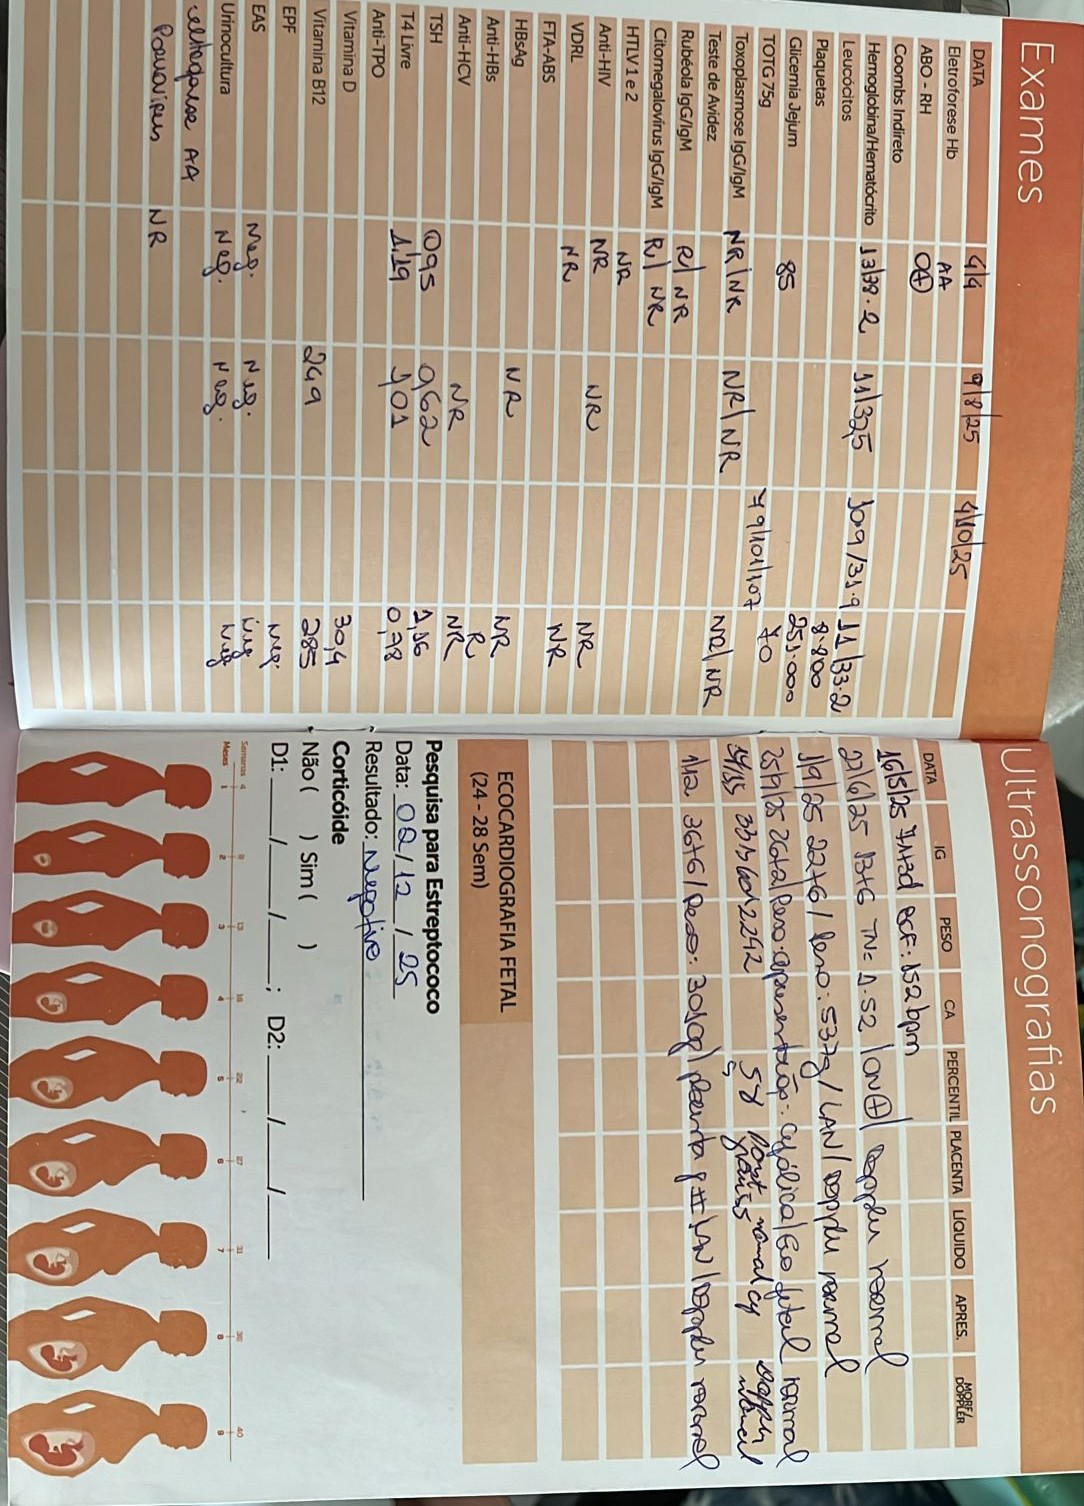 Exames
DATA 4/4 9/8/25 4/10/25
Eletroforese Hb AA
ABO - RH O+
Coombs Indireto
Hemoglobina/Hematócrito 13/38.2 11/32,5 10.9/31.9 11/33.2
Leucócitos 8.800
Plaquetas 251.000
Glicemia Jejum 85 70
TOTG 75g 79/101/107
Toxoplasmose IgG/IgM NR/NR NR/NR NR/NR
Teste de Avidez
Rubéola IgG/IgM R/NR
Citomegalovírus IgG/IgM R/NR
HTLV 1 e 2 NR
Anti-HIV NR NR NR
VDRL NR NR
FTA-ABS
HBsAg NR NR
Anti-HBs R
Anti-HCV NR NR
TSH 0,95 0,62 1,56
T4 Livre 1.19 1,01 0,78
Anti-TPO
Vitamina D 30,4
Vitamina B12 249 285
EPF Neg.
EAS Neg. Neg. Neg
Urinocultura Neg. Neg. Neg
AA
Parvovírus NR
Ultrassonografias
DATA IG PESO CA PERCENTIL PLACENTA LÍQUIDO APRES. MORF/DOPPLER
16/5/25 7s+3d BCF: 152bpm
22/6/25 13+6 TN= 1.52 / ON+ / Doppler normal
1/9/25 22+6 / Peso: 537g / LAN / Doppler normal
25/9/25 26+2 / Peso: apresentação: cefálica / Eco fetal normal
2242 58 Post normal Doppler normal
1/12 36+6 / Peso: 3010g / placenta / LAN / Doppler normal
ECOCARDIOGRAFIA FETAL
(24 - 28 Sem)
Pesquisa para Estreptococo
Data: 02/12/25
Resultado: Negativo
Corticóide
Não ( ) Sim ( )
D1: ____/____/____; D2: ____/____/____
Semanas 4 9 13 18 22 27 31 36 40
Meses 1 2 3 4 5 6 7 8 9